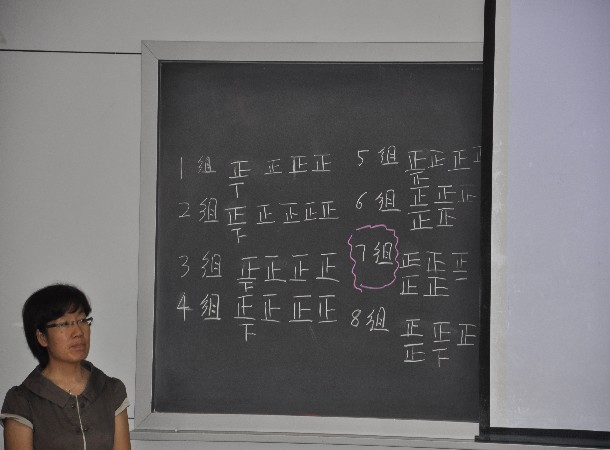 1 组 正 正 正 正
下
2 组 正 正 正 正 正
下
3 组 正 正 正 正
下
4 组 正 正 正 正
下
5 组 正 正 正
正
6 组 正 正
正
7 组 正 正
正 正
8 组 正 正 正
正 下